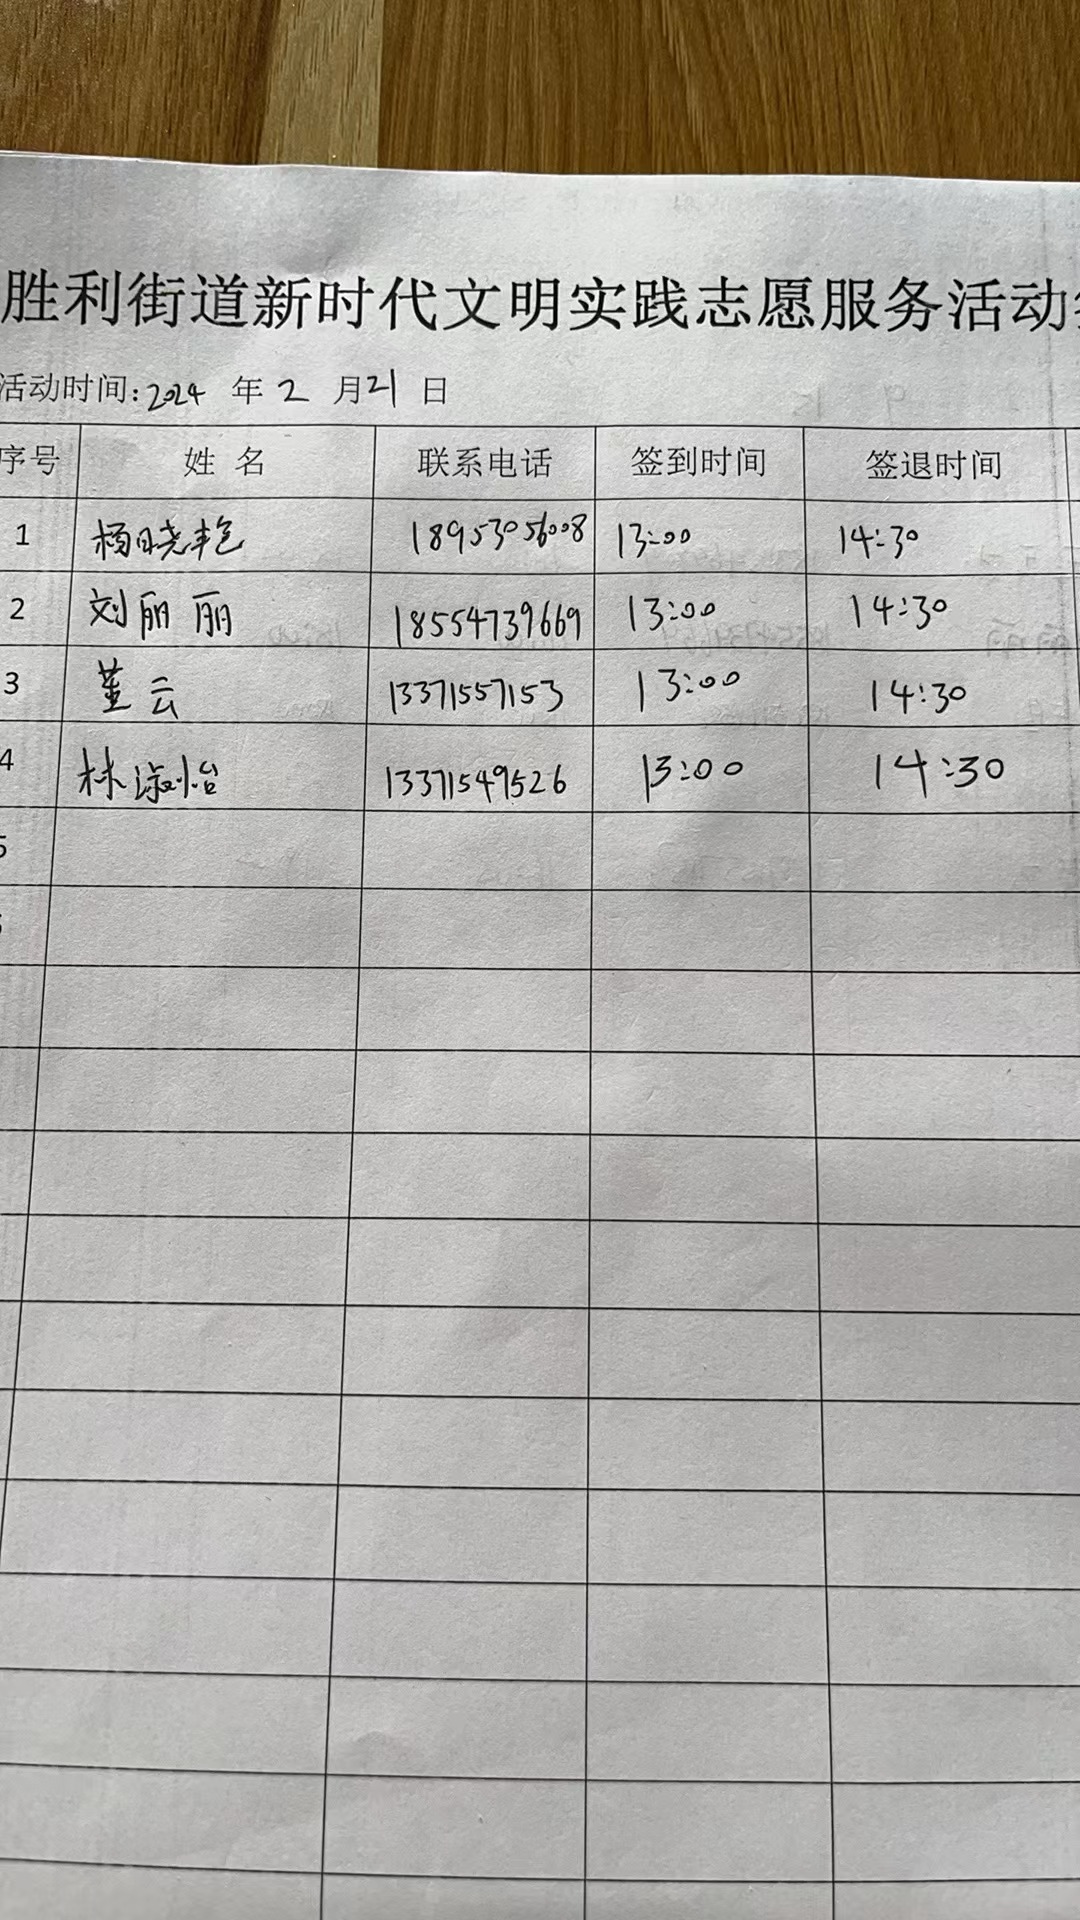 胜利街道新时代文明实践志愿服务活动
活动时间:2024 年 2 月 21 日
序号 姓 名 联系电话 签到时间 签退时间
1 杨晓艳 18953056008 13:00 14:30
2 刘丽丽 18554739669 13:00 14:30
3 董云 13371557153 13:00 14:30
4 林淑怡 13371549526 13:00 14:30
5